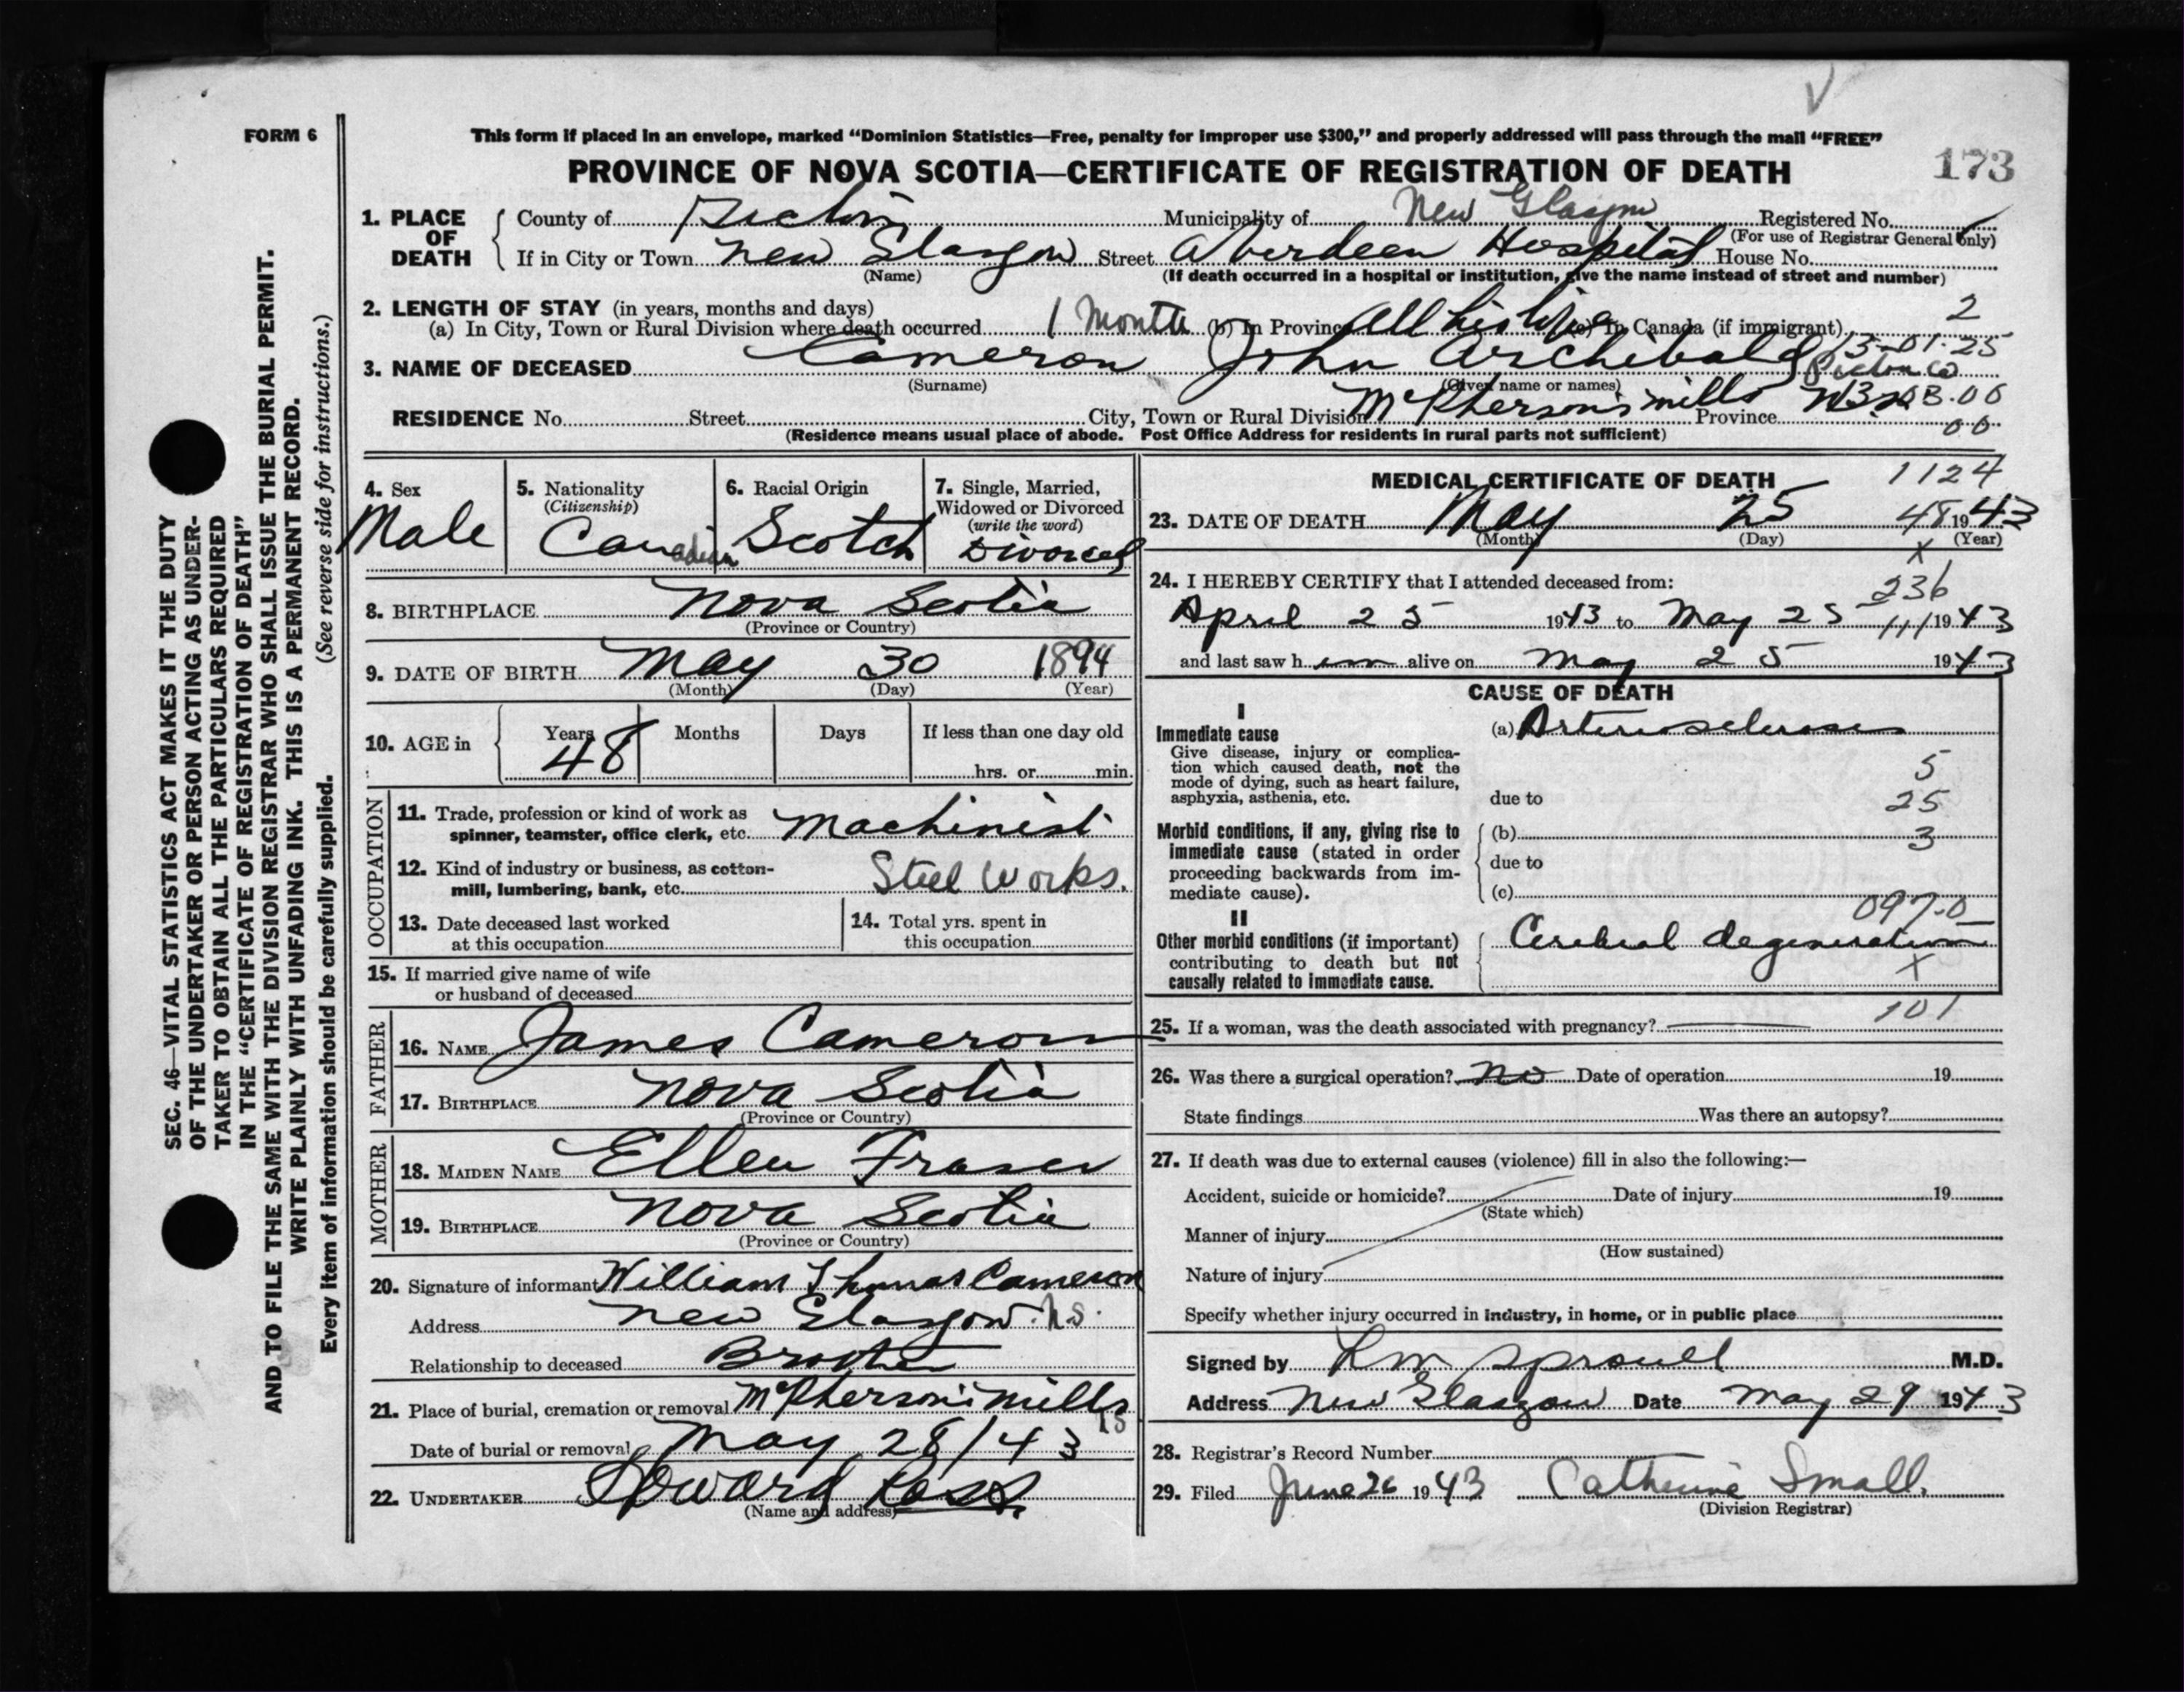 FORM 6
This form if placed in an envelope, marked “Dominion Statistics—Free, penalty for improper use $300,” and properly addressed will pass through the mail “FREE”
PROVINCE OF NOVA SCOTIA—CERTIFICATE OF REGISTRATION OF DEATH
173
SEC. 46—VITAL STATISTICS ACT MAKES IT THE DUTY
OF THE UNDERTAKER OR PERSON ACTING AS UNDER-
TAKER TO OBTAIN ALL THE PARTICULARS REQUIRED
IN THE “CERTIFICATE OF REGISTRATION OF DEATH”
AND TO FILE THE SAME WITH THE DIVISION REGISTRAR WHO SHALL ISSUE THE BURIAL PERMIT.
WRITE PLAINLY WITH UNFADING INK. THIS IS A PERMANENT RECORD.
Every item of information should be carefully supplied. (See reverse side for instructions.)
1. PLACE OF DEATH
County of Pictou Municipality of New Glasgow Registered No.
(For use of Registrar General only)
If in City or Town New Glasgow Street Aberdeen Hospital House No.
(Name) (If death occurred in a hospital or institution, give the name instead of street and number)
2. LENGTH OF STAY (in years, months and days)
(a) In City, Town or Rural Division where death occurred 1 Month (b) In Province All his life (c) In Canada (if immigrant) 2
3. NAME OF DECEASED Cameron John Archibald 13-01-25
(Surname) (Given name or names) Pictou Co
RESIDENCE No. Street City, Town or Rural Division McPherson's mills Province 03.00
(Residence means usual place of abode. Post Office Address for residents in rural parts not sufficient) 00
4. Sex
Male
5. Nationality
(Citizenship)
Canadian
6. Racial Origin
Scotch
7. Single, Married,
Widowed or Divorced
(write the word)
Divorced
8. BIRTHPLACE Nova Scotia
(Province or Country)
9. DATE OF BIRTH May 30 1894
(Month) (Day) (Year)
10. AGE in Years Months Days If less than one day old
48 hrs. or min.
OCCUPATION
11. Trade, profession or kind of work as
spinner, teamster, office clerk, etc. Machinist
12. Kind of industry or business, as cotton-
mill, lumbering, bank, etc. Steel Works.
13. Date deceased last worked
at this occupation
14. Total yrs. spent in
this occupation
15. If married give name of wife
or husband of deceased
FATHER
16. NAME James Cameron
17. BIRTHPLACE Nova Scotia
(Province or Country)
MOTHER
18. MAIDEN NAME Ellen Fraser
19. BIRTHPLACE Nova Scotia
(Province or Country)
20. Signature of informant William Thomas Cameron
Address New Glasgow. N.S.
Relationship to deceased Brother
21. Place of burial, cremation or removal McPherson's Mills
NS
Date of burial or removal May 28/43
22. UNDERTAKER Howard Ross
(Name and address)
MEDICAL CERTIFICATE OF DEATH 1124
48
23. DATE OF DEATH May 25 1943
(Month) (Day) (Year)
x
24. I HEREBY CERTIFY that I attended deceased from: 236
April 25 1943 to May 25 111 1943
and last saw h im alive on May 25 1943
CAUSE OF DEATH
I
Immediate cause
Give disease, injury or complica-
tion which caused death, not the
mode of dying, such as heart failure,
asphyxia, asthenia, etc.
(a) Arteriosclerosis
5
due to 25
Morbid conditions, if any, giving rise to
immediate cause (stated in order
proceeding backwards from im-
mediate cause).
(b) 3
due to
(c)
097.0
II
Other morbid conditions (if important)
contributing to death but not
causally related to immediate cause.
Cerebral degeneration
x
101
25. If a woman, was the death associated with pregnancy?
26. Was there a surgical operation? No Date of operation 19
State findings Was there an autopsy?
27. If death was due to external causes (violence) fill in also the following:—
Accident, suicide or homicide? Date of injury 19
(State which)
Manner of injury
(How sustained)
Nature of injury
Specify whether injury occurred in industry, in home, or in public place
Signed by Sproull M.D.
Address New Glasgow Date May 29 1943
28. Registrar's Record Number
29. Filed June 26 1943 Catherine Small.
(Division Registrar)